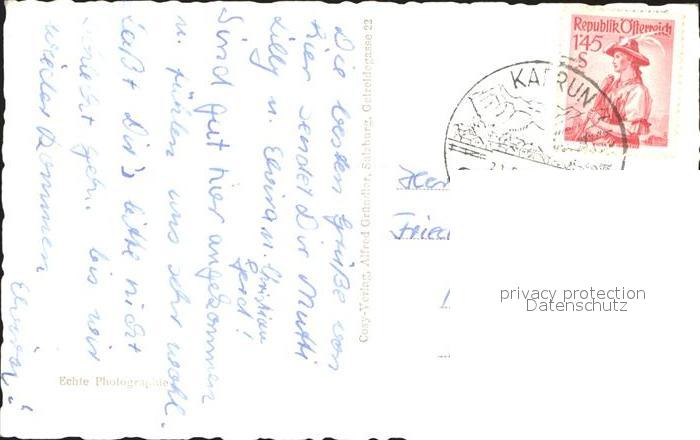 Die besten Grüße von
hier sendet Dir Mutti
Lilly u. Elvira u. Christian
Gerd!
Sind gut hier angekommen
u. fühlen uns sehr wohl.
Laßt Dir's bitte nicht
gehn. bis wir
wieder kommen
Elvira!
Echte Photographie
Cosy-Verlag, Alfred Gründler, Salzburg, Getreidegasse 22
Republik Österreich
1'45
S
KAPRUN
privacy protection
Datenschutz